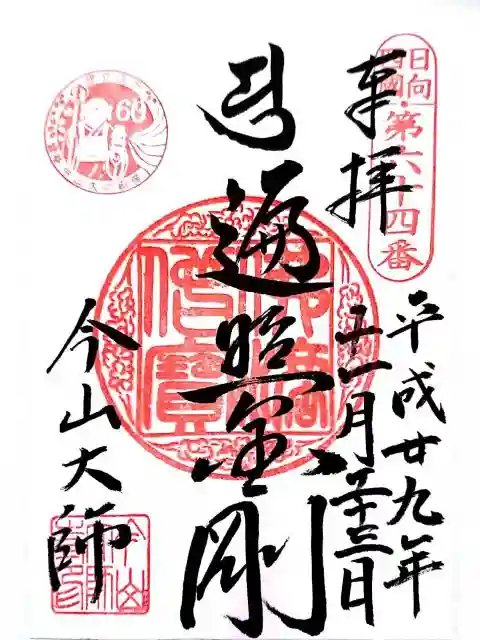 日向
四國
第六十四番
奉拝
平成廿九年
月二十三日
遍照金剛
佛法
僧寶
60
今山大師